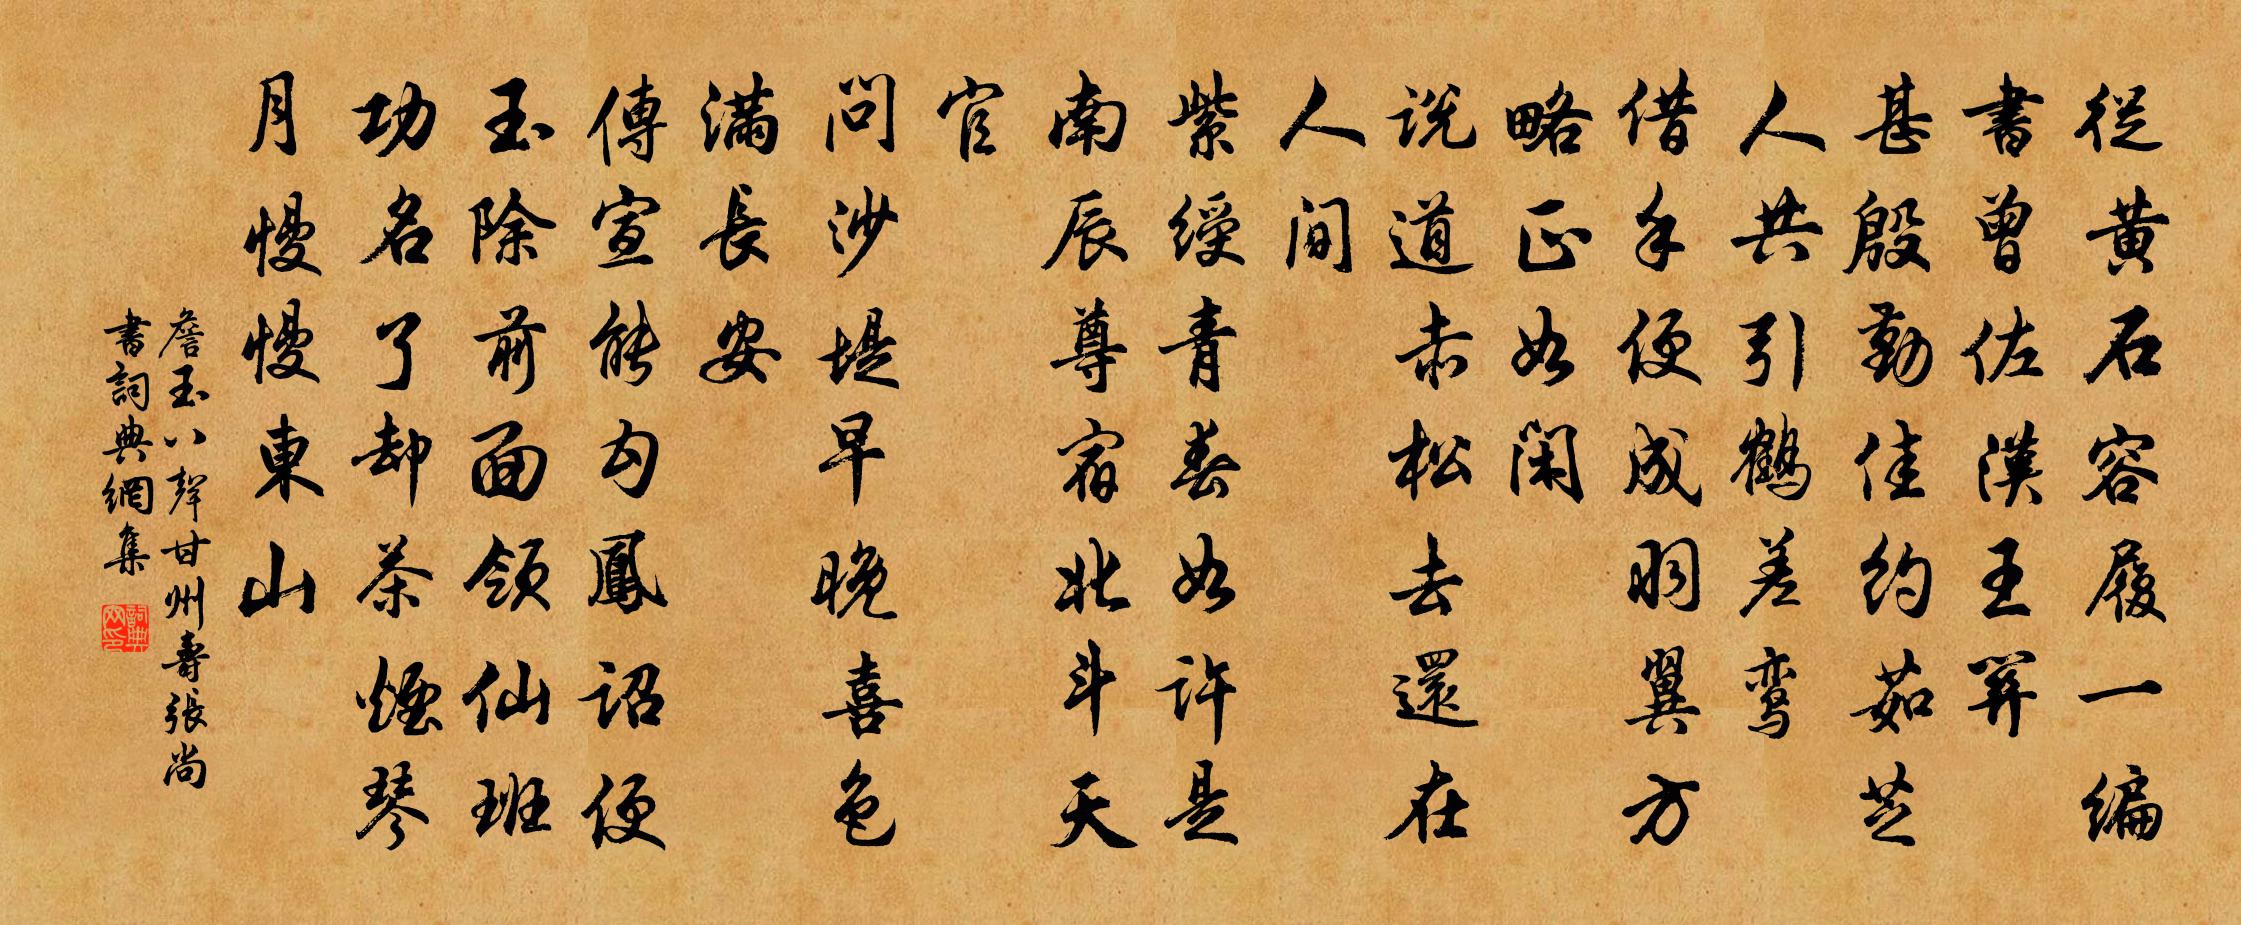 從黄石容履一編
書曾佐漢王關
甚殷勤佳約茹芝
人共引鶴差鸾
借手便成羽翼方
略正如閑
說道赤松去還在
人間
紫綬青春如許是
南辰尊宿北斗天
官
問沙堤早晚喜色
滿長安
傳宣能勾鳳詔便
玉除前面領仙班
功名了却茶煙琴
月慢慢東山
詹玉八聲甘州壽張尚
書詞典網集
詞典網印